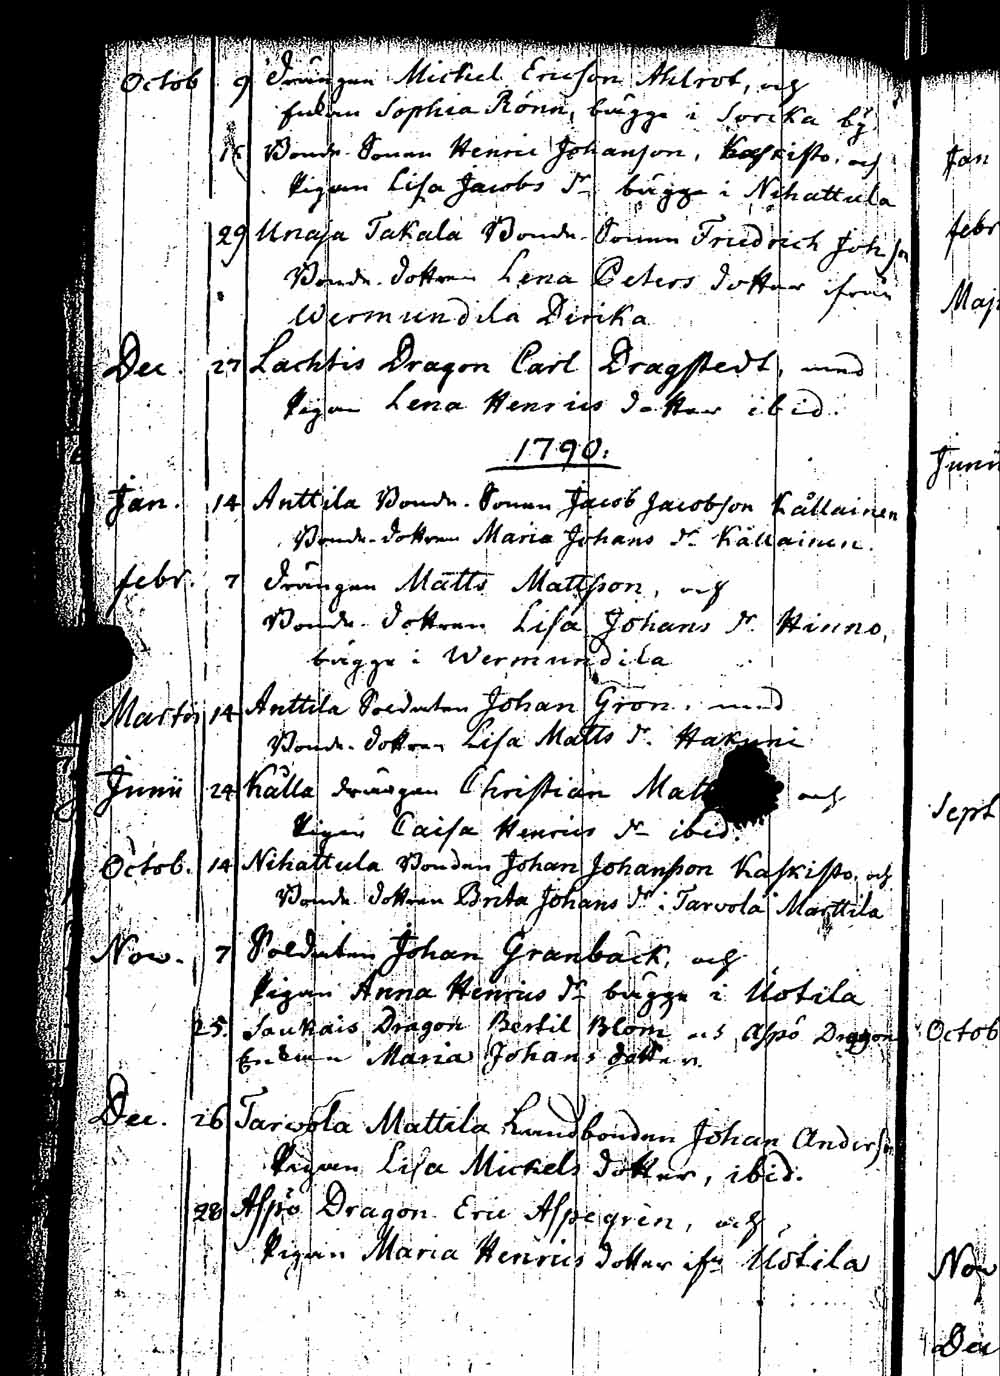 Octob 9 Drängen Michel Ericson Ahlrot, och
Enkan Sophia Rönn, bägge i Sorcka by
16 Bonde-Sonen Henric Johanson, Kaskisto, och
Pigan Lisa Jacobs Dr bägge i Nihattula
29 Unaja Takala Bonde-Sonen Friedrich Joh son
Bonde-dottren Lena Peters dotter ifrån
Wermundila Dirika
Dec. 27 Lachtis Dragon Carl Dragstedt, med
Pigan Lena Henrics dotter ibid.
1790:
Jan. 14 Anttila Bonde-Sonen Jacob Jacobson Källainen
Bonde-dottren Maria Johans Dr Källainen.
febr. 7 Drängen Matts Mattsson, och
Bonde-dottren Lisa Johans Dr. Hinno,
bägge i Wermundila
Martii 14 Anttila Soldaten Johan Grön, med
Bonde-dottren Lisa Matts Dr. Hakuni
Junii 24 Källa drängen Christian Matt och
Pigan Caisa Henrics Dr ibid.
Octob. 14 Nihattula Bonden Johan Johansson Kaskisto, och
Bonde dottren Brita Johans Dr i Tarvola Marttila
Nov. 7 Soldaten Johan Granbäck, och
Pigan Anna Henrics Dr bägge i Uotila
25. Saukais Dragon Bertil Blom och Aspö Dragon
Enkan Maria Johans dotter.
Dec. 26 Tarvola Mattila Landbonden Johan Anderson
Pigan Lisa Michels dotter, ibid.
28 Aspö Dragon Eric Aspegrén, och
Pigan Maria Henrics dotter ifr Uotila
Jan
febr
Maji
Junii
Sept
Octob
Nov
Dec